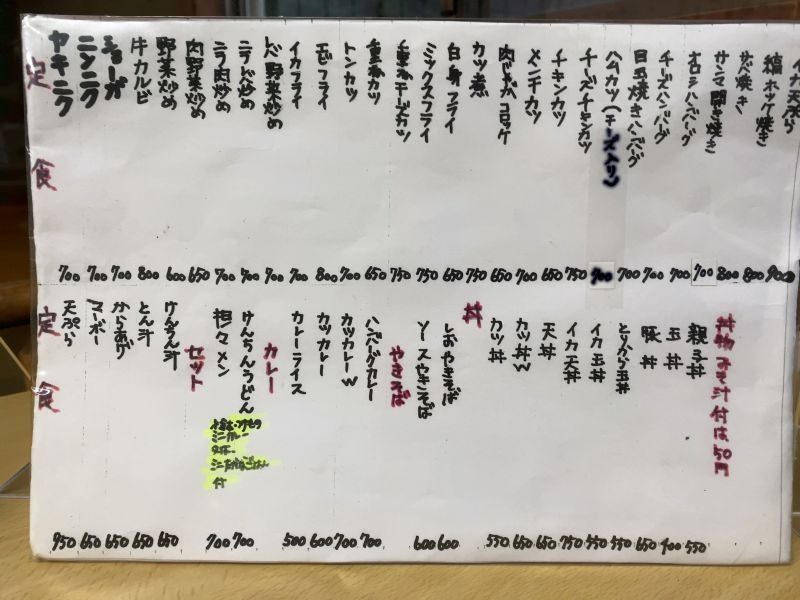 定食
ヤキニク
ニンニク
ショーガ
牛カルビ
野菜炒め
肉野菜炒め
ニラ肉炒め
ニラレバ炒め
レバ野菜炒め
イカフライ
エビフライ
トンカツ
重ねカツ
重ねチーズカツ
ミックスフライ
白身フライ
カツ煮
肉じゃがコロッケ
メンチカツ
チキンカツ
チーズチキンカツ
ハムカツ(チーズ入り)
目玉焼きハンバーグ
チーズハンバーグ
おろしハンバーグ
サンマ開き焼き
サバ焼き
縞ホッケ焼き
イカ天ぷら
700 700 700 800 600 650 700 700 700 800 700 650 750 750 650 750 650 700 650 750 700 700 700 700 800 800 900
定食
天ぷら
マーボー
からあげ
とん汁
けんちん汁
セット
担々メン
けんちんうどん
付
カレー
カレーライス
カツカレー
カツカレーW
ハンバーグカレー
やきそば
ソースやきそば
しおやきそば
丼
カツ丼
カツ丼W
天丼
イカ天丼
イカ玉丼
とりから玉丼
豚丼
玉丼
親子丼
丼物みそ汁付は50円
950 650 650 650 650 700 700 500 600 700 700 600 600 550 650 650 750 550 550 650 400 550